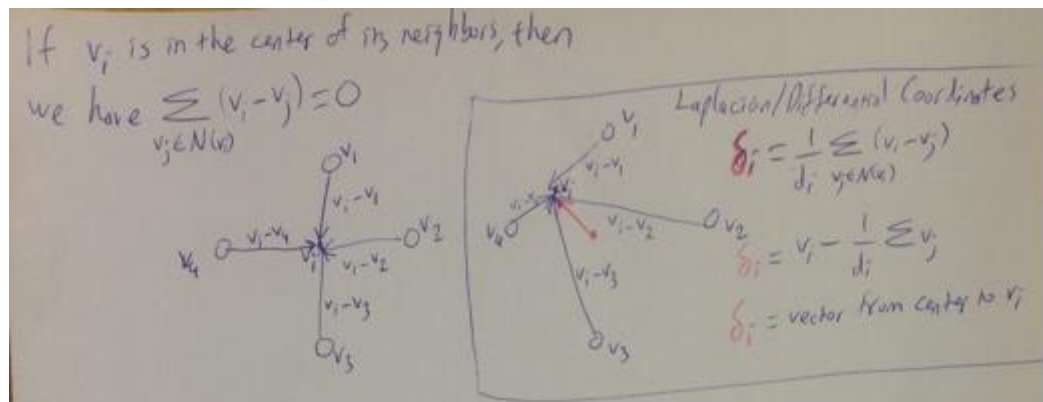 If vᵢ is in the center of its neighbors, then
we have Σ (vᵢ - vⱼ) = 0
vⱼ∈N(vᵢ)
v₁
vᵢ-v₁
v₄
vᵢ-v₄
vᵢ
vᵢ-v₂
v₂
vᵢ-v₃
v₃
Laplacian/Differential Coordinates
δᵢ = 1/dᵢ Σ (vᵢ-vⱼ)
vⱼ∈N(vᵢ)
δᵢ = vᵢ - 1/dᵢ Σ vⱼ
δᵢ = vector from center to vᵢ
v₁
vᵢ-v₁
vᵢ
v₄
vᵢ-v₂
v₂
vᵢ-v₃
v₃